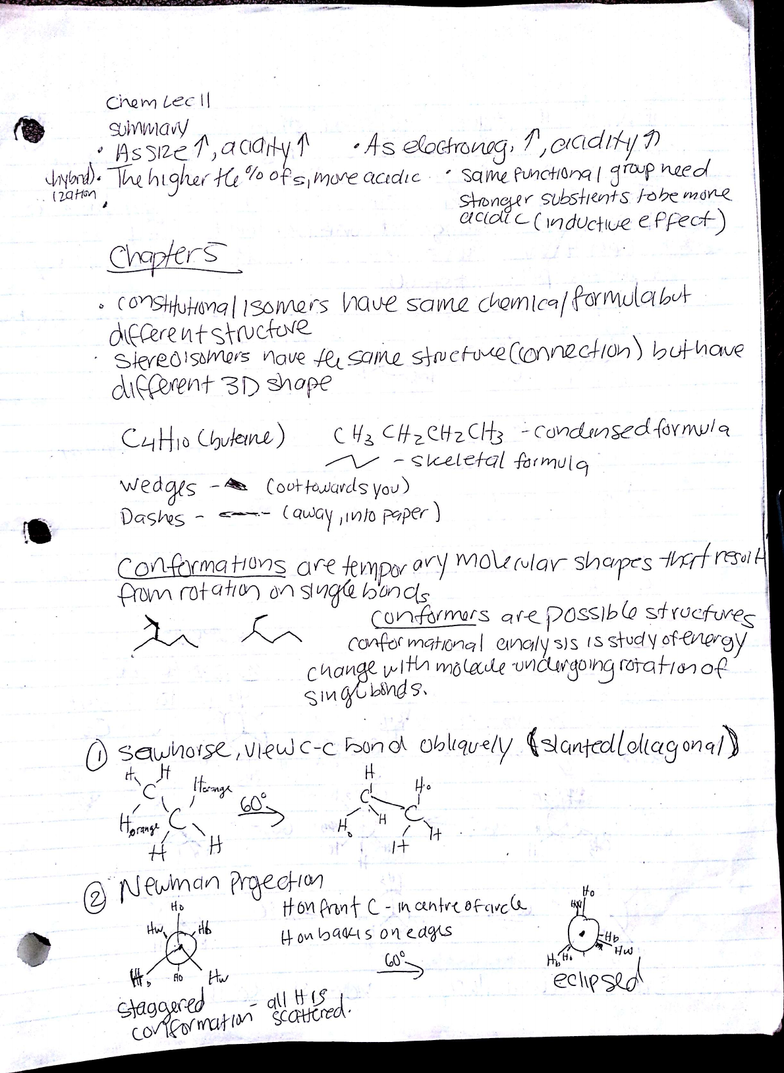 Chem Lec 11
summary
• As size ↑, acidity ↑ • As electroneg. ↑, acidity ↑
(hybridization) • The higher the % of s, more acidic • same functional group need
stronger substients to be more
acidic (inductive effect)
Chapter 5
• constitutional isomers have same chemical formula but
different structure
• stereoisomers have the same structure (connection) but have
different 3D shape
C4H10 (butane) CH3 CH2CH2CH3 - condensed formula
- skeletal formula
wedges - (out towards you)
Dashes - (away, into paper)
Conformations are temporary molecular shapes that result
from rotation on single bonds
conformers are possible structures
conformational analysis is study of energy
change with molecule undergoing rotation of
singl bonds.
① sawhorse, view C-C bond obliquely (slanted/diagonal)
H H
C Horange
Horange C
H H
60°
H
C Ho
Ho H C
H H
② Newman Projection
Ho
Hw Hb
Hb Ho Hw
H on front C - in centre of circle
H on back is on edges
60°
Ho
Hw
Hb
Hb Ho Hw
eclipsed
staggered
conformation - all H is
scattered.